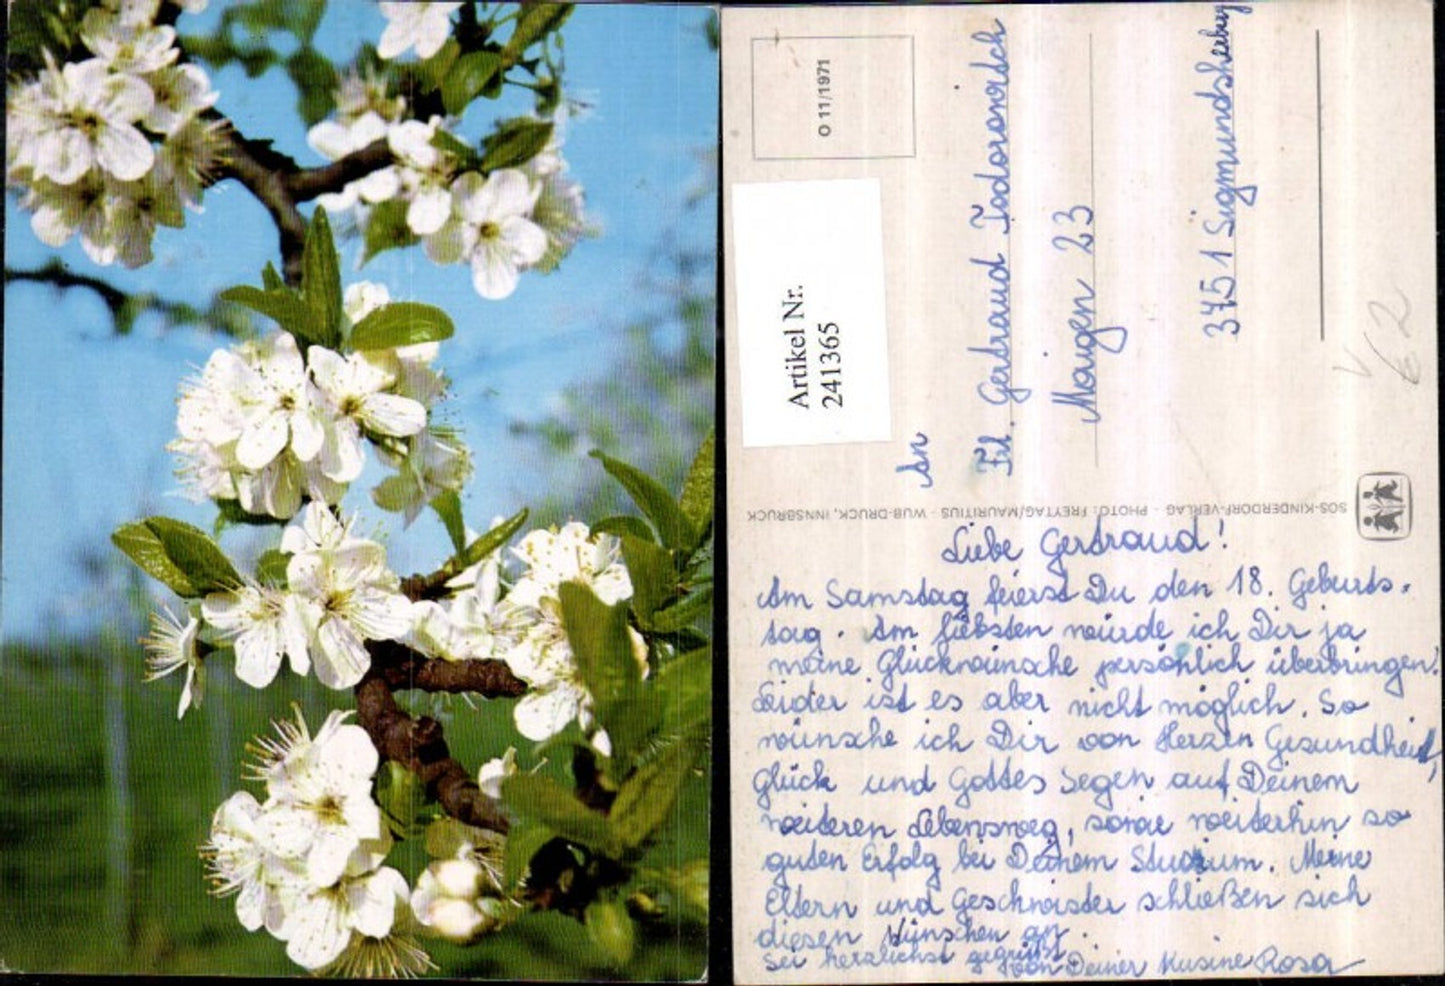 O 11/1971
Artikel Nr.
241365
An
Frl. Gertraud Todoronitsch
Maigen 23
3751 Sigmundsherberg
€ 2
SOS-KINDERDORF-VERLAG · PHOTO: FREYTAG/MAURITIUS · WUB-DRUCK, INNSBRUCK
Liebe Gertraud!
Am Samstag feierst Du den 18. Geburts-
tag. Am liebsten würde ich Dir ja
meine Glückwünsche persönlich überbringen!
Leider ist es aber nicht möglich. So
wünsche ich Dir von Herzen Gesundheit,
Glück und Gottes Segen auf Deinem
weiteren Lebensweg, sowie weiterhin so
guten Erfolg bei Deinem Studium. Meine
Eltern und Geschwister schließen sich
diesen Wünschen an.
Sei herzlichst gegrüßt
von Deiner Kusine Rosa